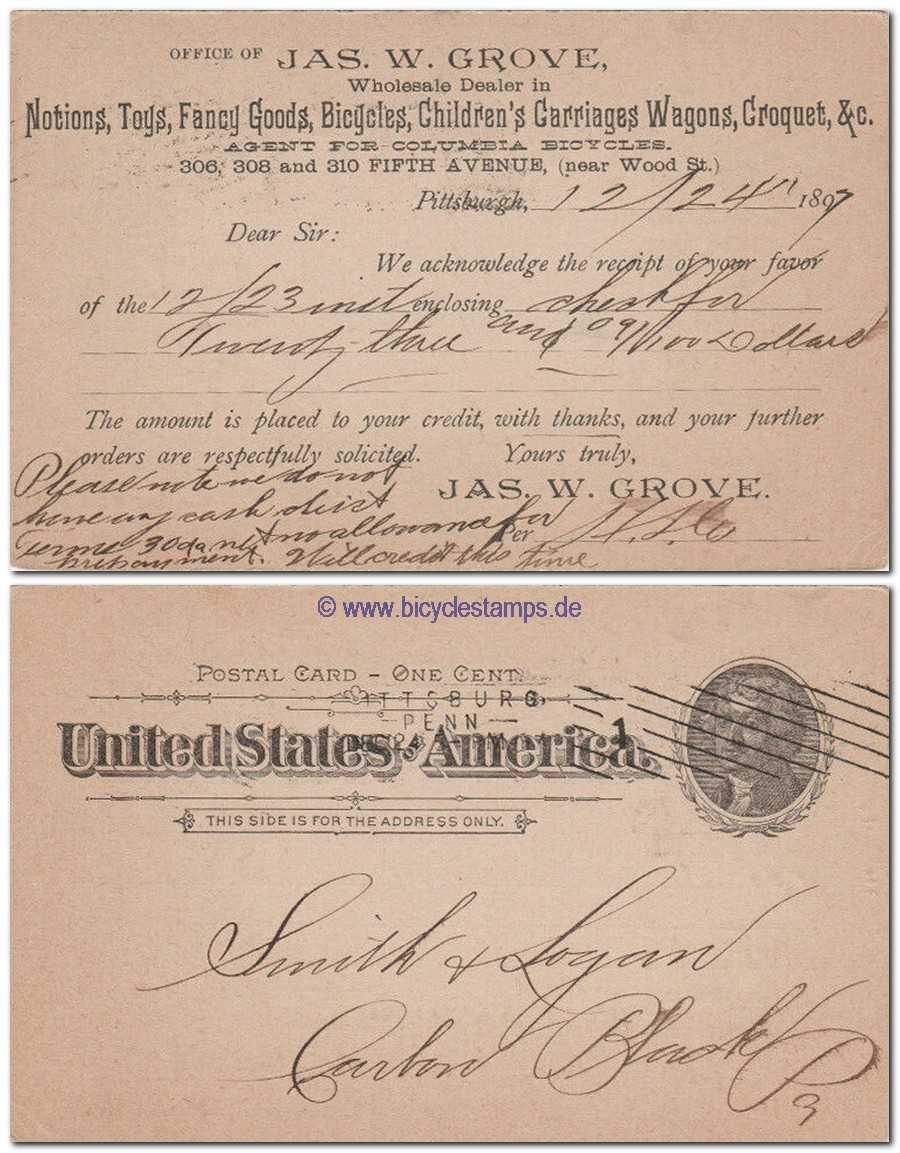 OFFICE OF JAS. W. GROVE,
Wholesale Dealer in
Notions, Toys, Fancy Goods, Bicycles, Children's Carriages Wagons, Croquet, &c.
AGENT FOR COLUMBIA BICYCLES.
306, 308 and 310 FIFTH AVENUE, (near Wood St.)
Pittsburgh, 12/24" 1897
Dear Sir:
We acknowledge the receipt of your favor
of the 12/23 inst enclosing check for
Twenty three and 09/100 Dollars
The amount is placed to your credit, with thanks, and your further
orders are respectfully solicited. Yours truly,
JAS. W. GROVE.
Please note we do not
have any cash dist
Per
Terms 30 da net no allowance for
prepayment. Will credit this time
© www.bicyclestamps.de
POSTAL CARD - ONE CENT.
PITTSBURG,
PENN
United States of America.
1
THIS SIDE IS FOR THE ADDRESS ONLY.
Smith & Logan
Carbon Black
Pa